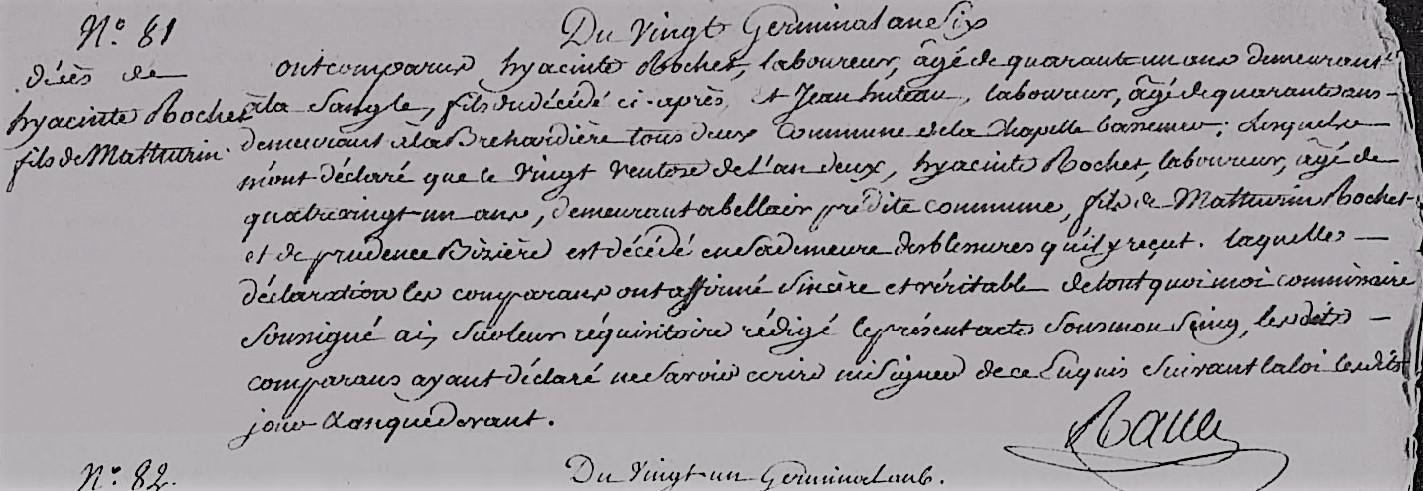 N.° 81
Du Vingt Germinal an Six
décès de
hyacinte Rocher
fils de Matturin.
ont comparus hyacinte Rocher, laboureur, âgé de quarante un ans demeurant
à la Sangle, fils du décédé ci-après, et Jean huteau, laboureur, âgé de quarante ans -
demeurant à la Brehardière tous deux commune de la Chapelle bassemer; Lesquels
m'ont déclaré que le Vingt Ventose de l'an deux, hyacinte Rocher, laboureur, âgé de
quatrevingt-un ans, demeurant a bellair prédite commune, fils de Matturin Rocher
et de prudence Bizière est décédé en sa demeure des blesures qu'il y reçut. laquelle -
déclaration les comparans ont affirmé Sincère et véritable de tout quoi moi commissaire
Soussigné ai, sur leur réquisitoire rédigé le présent acte Sous mon Seing, les dits -
comparans ayant déclaré ne Savoir écrire ni Signer de ce Enquis Suivant la loi lesdits
jour & an que devant.
N.° 82.
Du Vingt-un Germinal an 6.